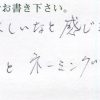 お書き下さい。
しいなと感じま
と ネーミング